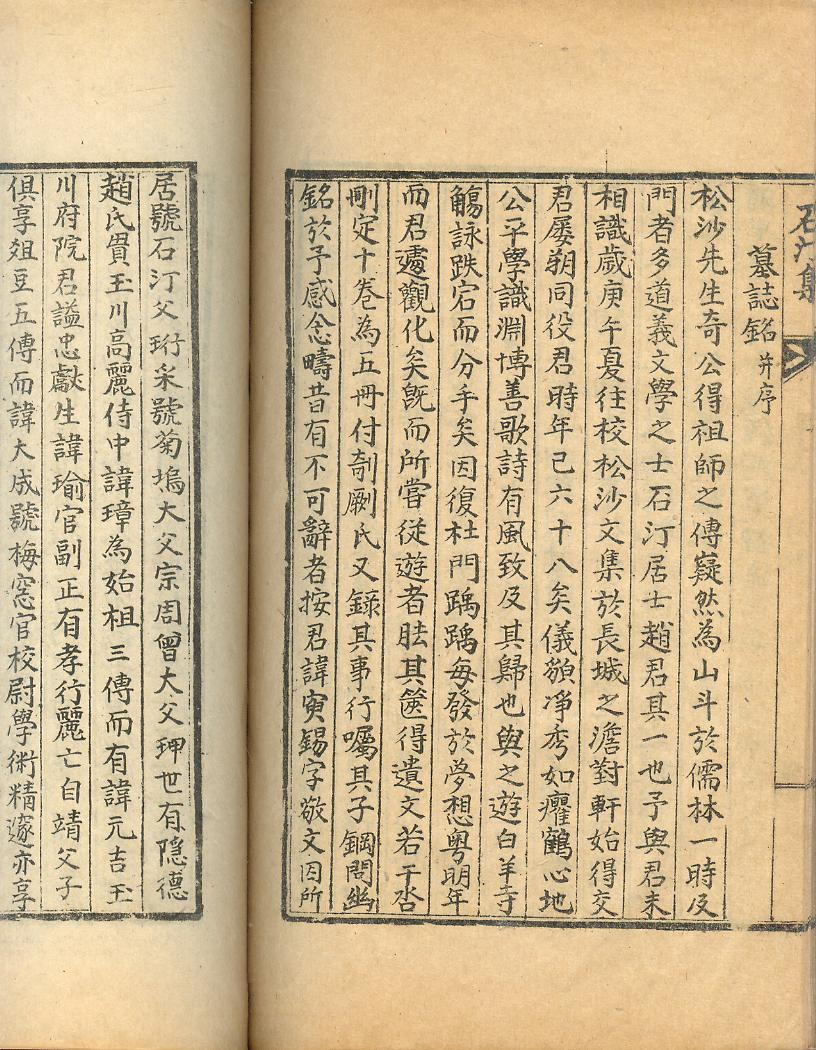 石汀集
墓誌銘并序
松沙先生奇公得祖師之傳嶷然為山斗於儒林一時及
門者多道義文學之士石汀居士趙君其一也予與君未
相識歲庚午夏往校松沙文集於長城之澹對軒始得交
君屡朔同役君時年已六十八矣儀顀凈秀如癯鶴心地
公平學識淵博善歌詩有風致及其歸也與之遊白羊寺
觴詠跌宕而分手矣因復杜門踽踽每發於夢想粤明年
而君遽觀化矣旣而所嘗從遊者胠其篋得遺文若干沓
刪定十卷為五冊付剞劂氏又錄其事行囑其子鋼問幽
銘於予感念疇昔有不可辭者按君諱寅錫字敬文因所
居號石汀父珩采號菊塢大父宗周曾大父珅世有隱德
趙氏貫玉川高麗侍中諱璋為始祖三傳而有諱元吉玉
川府院君謚忠獻生諱瑜官副正有孝行麗亡自靖父子
俱享俎豆五傳而諱大成號梅窓官校尉學術精邃亦享